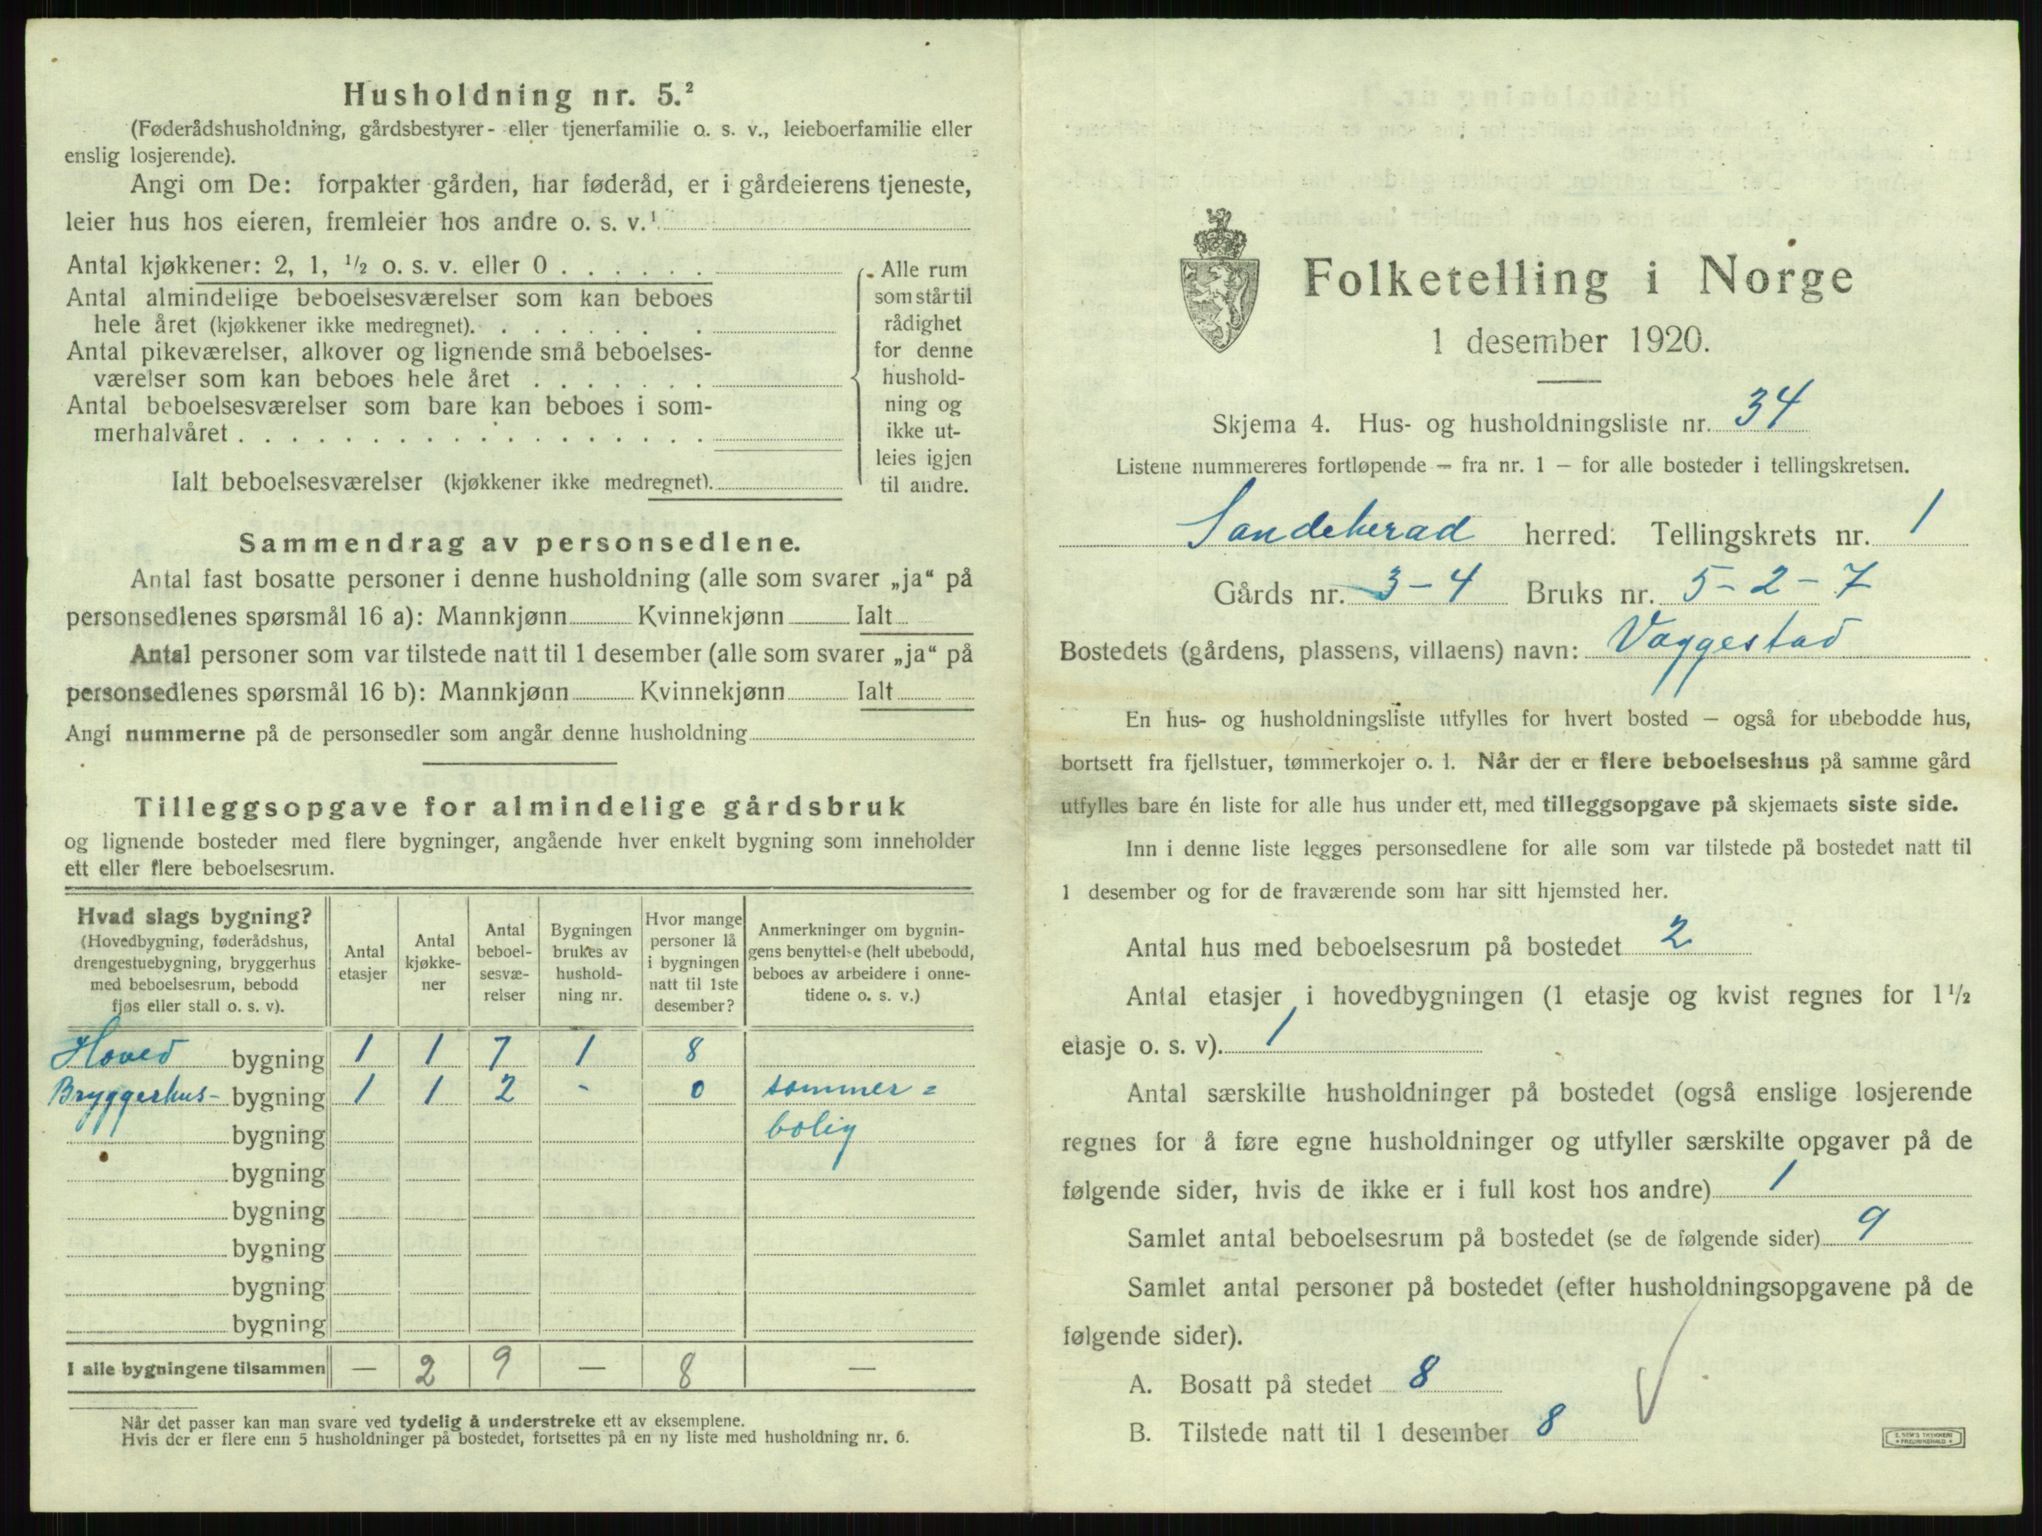 Husholdning nr. 5.²
(Føderådshusholdning, gårdsbestyrer- eller tjenerfamilie o. s. v., leieboerfamilie eller
enslig losjerende).
Angi om De: forpakter gården, har føderåd, er i gårdeierens tjeneste,
leier hus hos eieren, fremleier hos andre o. s. v.¹
Antal kjøkkener: 2, 1, ½ o. s. v. eller 0 . . . . . .
Antal almindelige beboelsesværelser som kan beboes
hele året (kjøkkener ikke medregnet). . . . . . . .
Antal pikeværelser, alkover og lignende små beboelses-
værelser som kan beboes hele året . . . . . . .
Antal beboelsesværelser som bare kan beboes i som-
merhalvåret . . . . . . . . . . . . . . . . . .
Ialt beboelsesværelser (kjøkkener ikke medregnet).
Alle rum
som står til
rådighet
for denne
hushold-
ning og
ikke ut-
leies igjen
til andre.
Sammendrag av personsedlene.
Antal fast bosatte personer i denne husholdning (alle som svarer „ja“ på
personsedlenes spørsmål 16 a): Mannkjønn Kvinnekjønn Ialt
Antal personer som var tilstede natt til 1 desember (alle som svarer „ja“ på
personsedlenes spørsmål 16 b): Mannkjønn Kvinnekjønn Ialt
Angi nummerne på de personsedler som angår denne husholdning
Tilleggsopgave for almindelige gårdsbruk
og lignende bosteder med flere bygninger, angående hver enkelt bygning som inneholder
ett eller flere beboelsesrum.
Hvad slags bygning?
(Hovedbygning, føderådshus,
drengestuebygning, bryggerhus
med beboelsesrum, bebodd
fjøs eller stall o. s. v).
Antal
etasjer
Antal
kjøkke-
ner
Antal
beboel-
sesvæ-
relser
Bygningen
brukes av
hushold-
ning nr.
Hvor mange
personer lå
i bygningen
natt til 1ste
desember?
Anmerkninger om bygnin-
gens benyttelse (helt ubebodd,
beboes av arbeidere i onne-
tidene o. s. v.)
Hoved bygning 1 1 7 1 8
Bryggerhus- bygning 1 1 2 - 0 sommer=
bygning bolig
bygning
bygning
bygning
bygning
bygning
I alle bygningene tilsammen — 2 9 — 8 —
Når det passer kan man svare ved tydelig å understreke ett av eksemplene.
Hvis der er flere enn 5 husholdninger på bostedet, fortsettes på en ny liste med husholdning nr. 6.
Folketelling i Norge
1 desember 1920.
Skjema 4. Hus- og husholdningsliste nr. 34
Listene nummereres fortløpende – fra nr. 1 – for alle bosteder i tellingskretsen.
Sandeherad herred. Tellingskrets nr. 1
Gårds nr. 3-4 Bruks nr. 5-2-7
Bostedets (gårdens, plassens, villaens) navn: Vaggestad
En hus- og husholdningsliste utfylles for hvert bosted – også for ubebodde hus,
bortsett fra fjellstuer, tømmerkojer o. l. Når der er flere beboelseshus på samme gård
utfylles bare én liste for alle hus under ett, med tilleggsopgave på skjemaets siste side.
Inn i denne liste legges personsedlene for alle som var tilstede på bostedet natt til
1 desember og for de fraværende som har sitt hjemsted her.
Antal hus med beboelsesrum på bostedet 2
Antal etasjer i hovedbygningen (1 etasje og kvist regnes for 1½
etasje o. s. v). 1
Antal særskilte husholdninger på bostedet (også enslige losjerende
regnes for å føre egne husholdninger og utfyller særskilte opgaver på de
følgende sider, hvis de ikke er i full kost hos andre) 1
Samlet antal beboelsesrum på bostedet (se de følgende sider) 9
Samlet antal personer på bostedet (efter husholdningsopgavene på de
følgende sider).
A. Bosatt på stedet 8
B. Tilstede natt til 1 desember 8